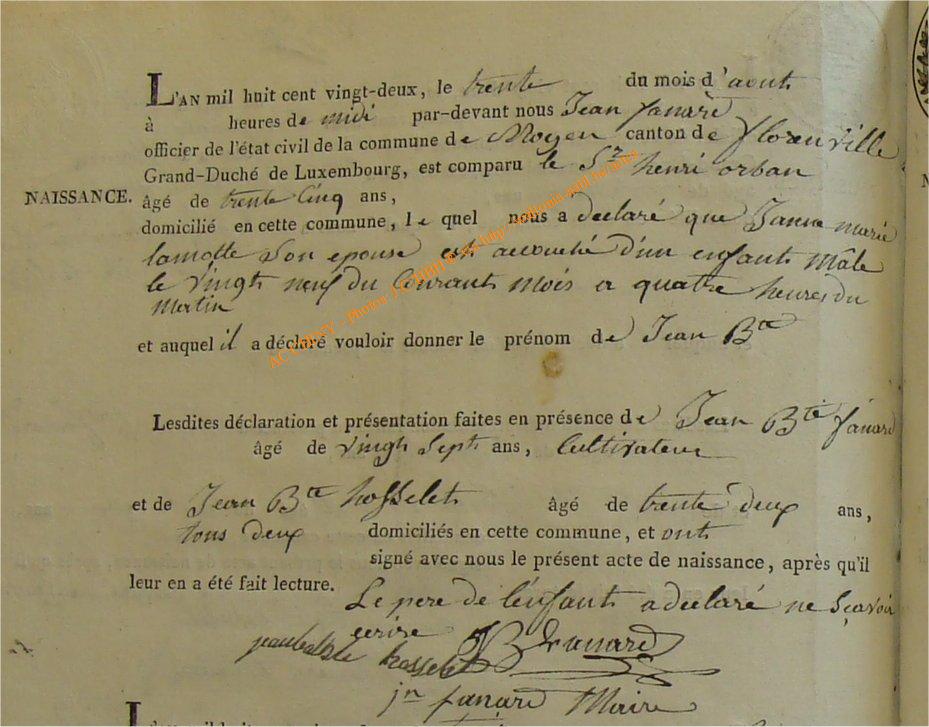 L'AN mil huit cent vingt-deux, le trente du mois d'aout
à heures de midi par-devant nous Jean fanard
officier de l'état civil de la commune de Moyen canton de florenville
Grand-Duché de Luxembourg, est comparu le Sr henri orban
NAISSANCE. âgé de trente Cinq ans,
domicilié en cette commune, le quel nous a declaré que Janne marie
lamotte Son epouse est accouché d'un enfant Mâle
le Vingt neuf du Courant mois a quatre heures du
Matin
et auquel il a déclaré vouloir donner le prénom de Jean Bte
Lesdites déclaration et présentation faites en présence de Jean Bte fanard
âgé de Vingt Sept ans, Cultivateur
et de Jean Bte hosselet âgé de trente deux ans,
tous deux domiciliés en cette commune, et ont
signé avec nous le présent acte de naissance, après qu'il
leur en a été fait lecture.
Le pere de l'enfant a declaré ne Sçavoir
ecrire JB fanard
jean hosselet
jn fanard Maire